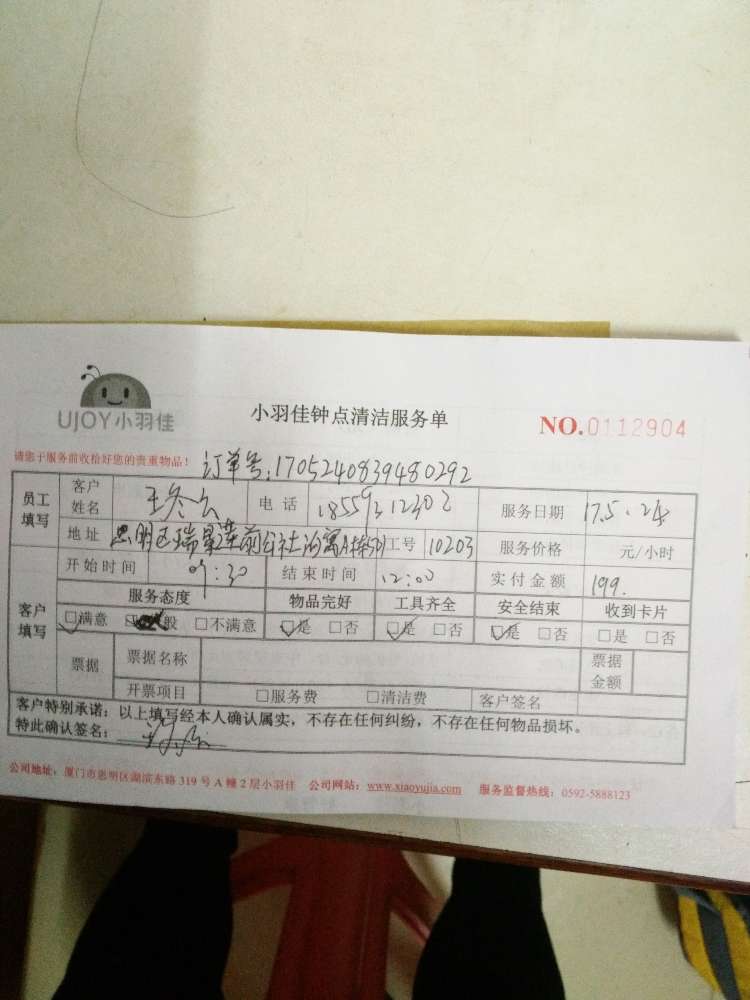 UJOY小羽佳
小羽佳钟点清洁服务单
NO.0112904
请您于服务前收拾好您的贵重物品！ 订单号:1705240839480292
员工填写 客户姓名 王冬 电话 服务日期 17.5.24
地址 思明区瑞景 工号 10203 服务价格 元/小时
客户填写 开始时间 09:30 结束时间 12:00 实付金额 199.
服务态度 物品完好 工具齐全 安全结束 收到卡片
☑满意 般 □不满意 ☑是 □否 ☑是 □否 ☑是 □否 □是 □否
票据 票据名称 票据金额
开票项目 □服务费 □清洁费 客户签名
客户特别承诺：以上填写经本人确认属实，不存在任何纠纷，不存在任何物品损坏。
特此确认签名：
公司地址：厦门市思明区湖滨东路 319 号 A 幢 2 层小羽佳 公司网站：www.xiaoyujia.com 服务监督热线：0592-5888123